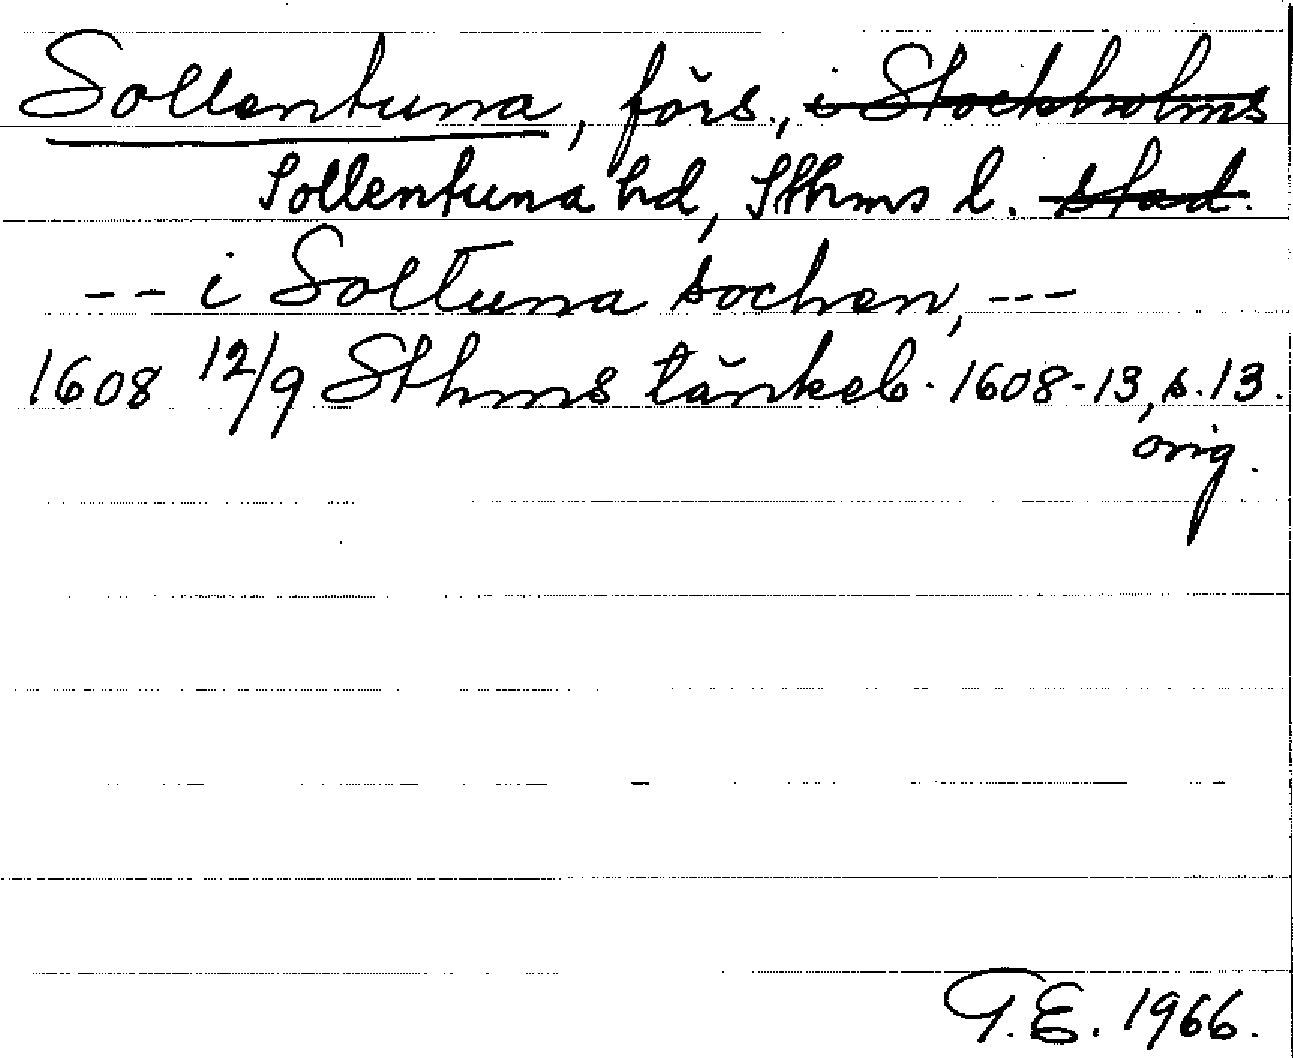 Sollentuna, förs., i Stockholms
Sollentuna hd, Sthms l. stad.
-- i Soltuna sochen, ---
1608 12/9 Sthms tänkeb. 1608-13, s. 13.
orig.
G.E. 1966.